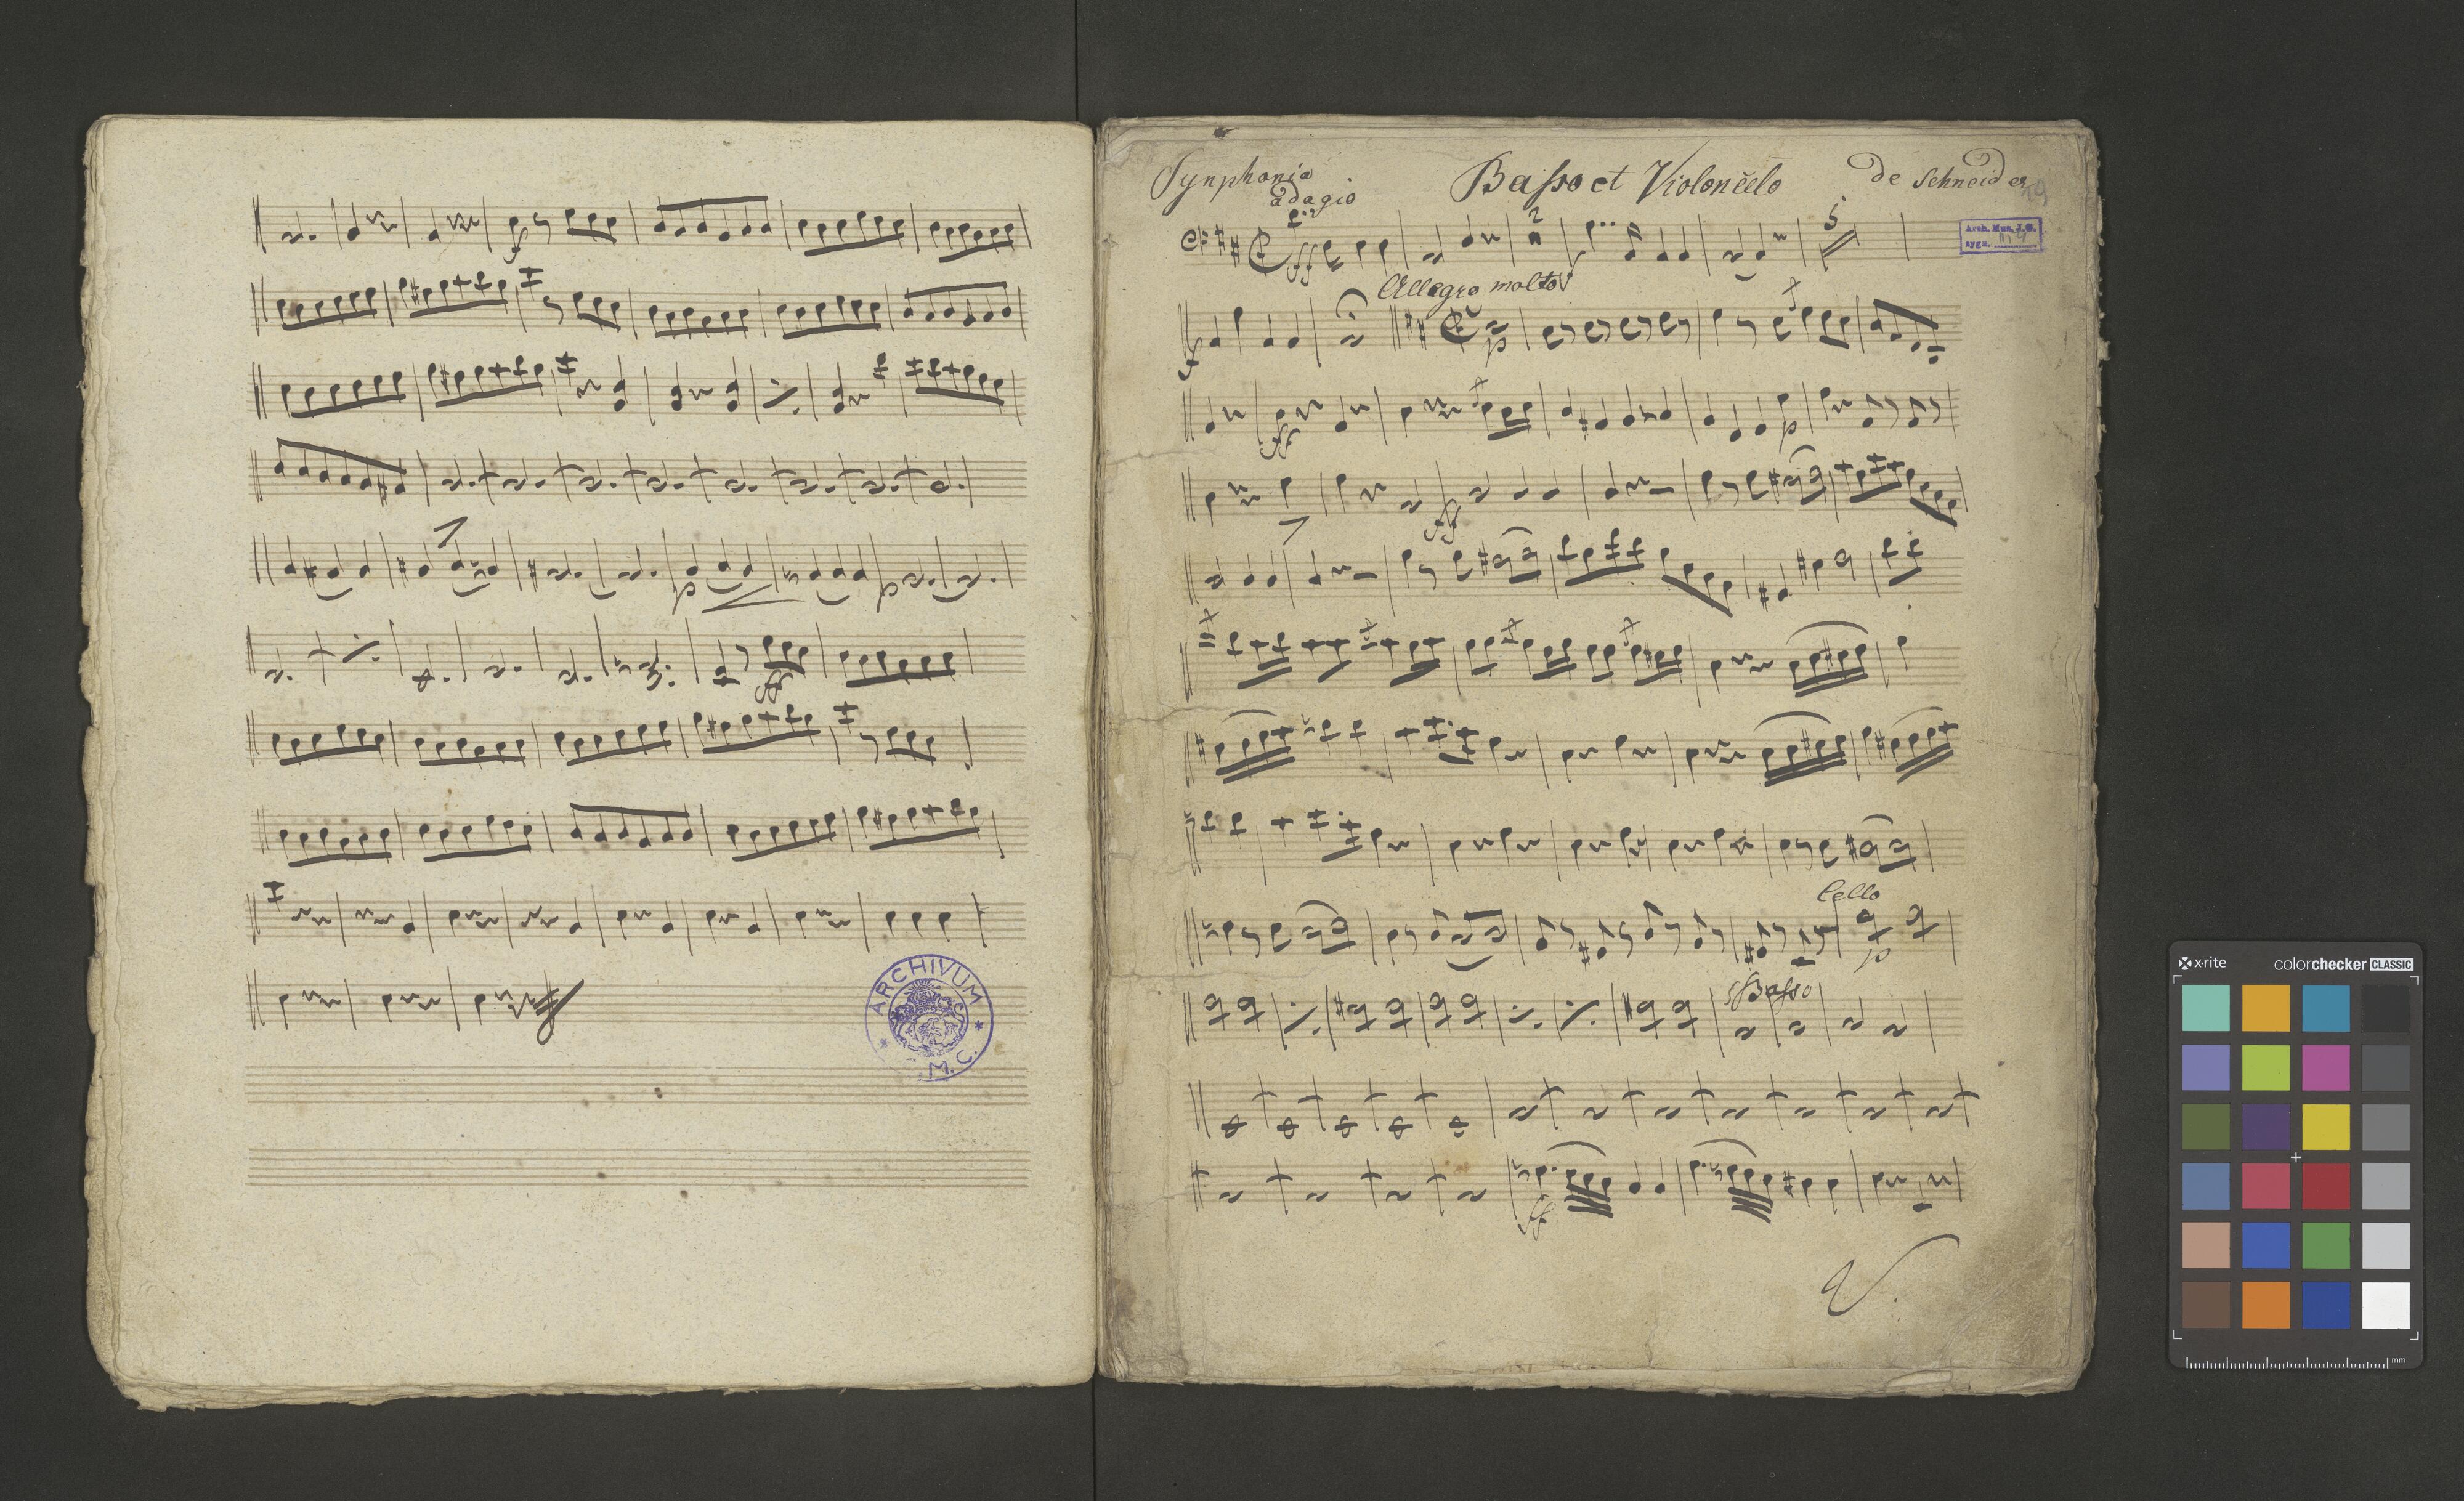 ARCHIVUM
M. C.
Synphonia Basso et Violoncelo de Schneider
adagio
ff
Arch. Mus. J. G.
sygn.
2
5
Allegro molto
p
ff
p
ff
Cello
p
Basso
ff
V.
f
p
p
ff
x-rite colorchecker CLASSIC
mm